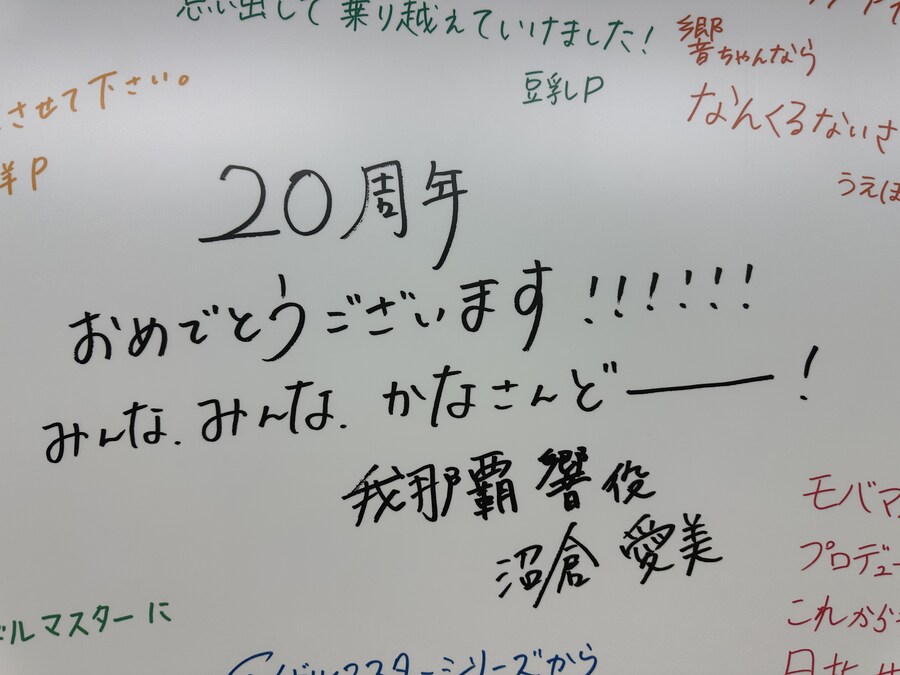 思い出して乗り越えていけました!
豆乳P
響ちゃんなら
なんくるないさ
うえほ
させて下さい。
洋P
20周年
おめでとうございます!!!!!!
みんな.みんな.かなさんどー!
我那覇響役
沼倉愛美
モバマ
プロデュー
これから
ドルマスターに
イドルマスターシリーズから